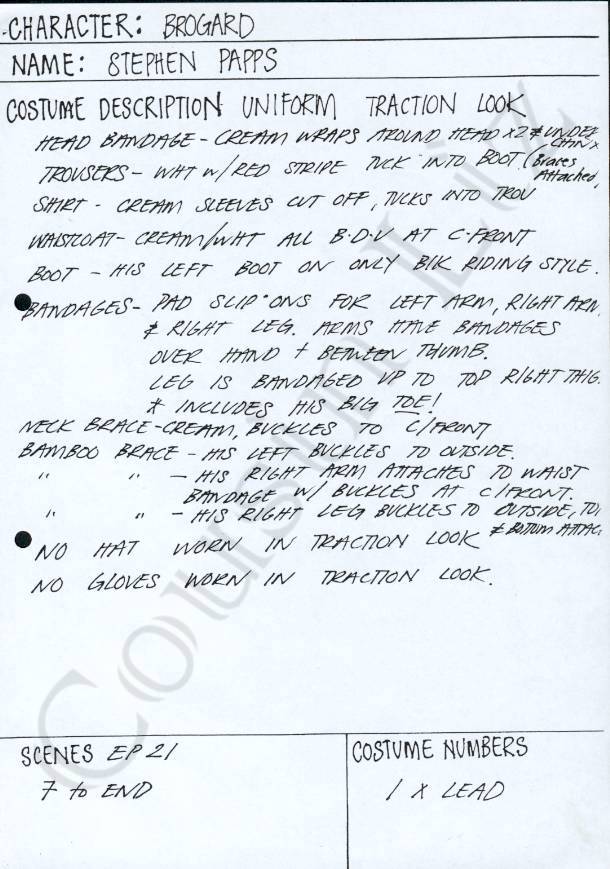 CHARACTER: BROGARD
NAME: STEPHEN PAPPS
COSTUME DESCRIPTION UNIFORM TRACTION LOOK
HEAD BANDAGE - CREAM WRAPS AROUND HEAD X2 & UNDER CHIN X
TROUSERS - WHT W/RED STRIPE TUCK INTO BOOT. (Braces Attached,
SHIRT - CREAM SLEEVES CUT OFF, TUCKS INTO TROU
WAISTCOAT - CREAM/WHT ALL B.D.U AT C.FRONT
BOOT - HIS LEFT BOOT ON ONLY BLK RIDING STYLE.
BANDAGES - PAD SLIP ONS FOR LEFT ARM, RIGHT ARM,
& RIGHT LEG. ARMS HAVE BANDAGES
OVER HAND + BETWEEN THUMB.
LEG IS BANDAGED UP TO TOP RIGHT THIG
* INCLUDES HIS BIG TOE!
NECK BRACE - CREAM, BUCKLES TO C/FRONT
BAMBOO BRACE - HIS LEFT BUCKLES TO OUTSIDE.
" " - HIS RIGHT ARM ATTACHES TO WAIST
BANDAGE W/ BUCKLES AT C/FRONT.
" " - HIS RIGHT LEG BUCKLES TO OUTSIDE, TO
& BOTTOM ATTAC
NO HAT WORN IN TRACTION LOOK
NO GLOVES WORN IN TRACTION LOOK.
SCENES EP 21
7 to END
COSTUME NUMBERS
1 X LEAD